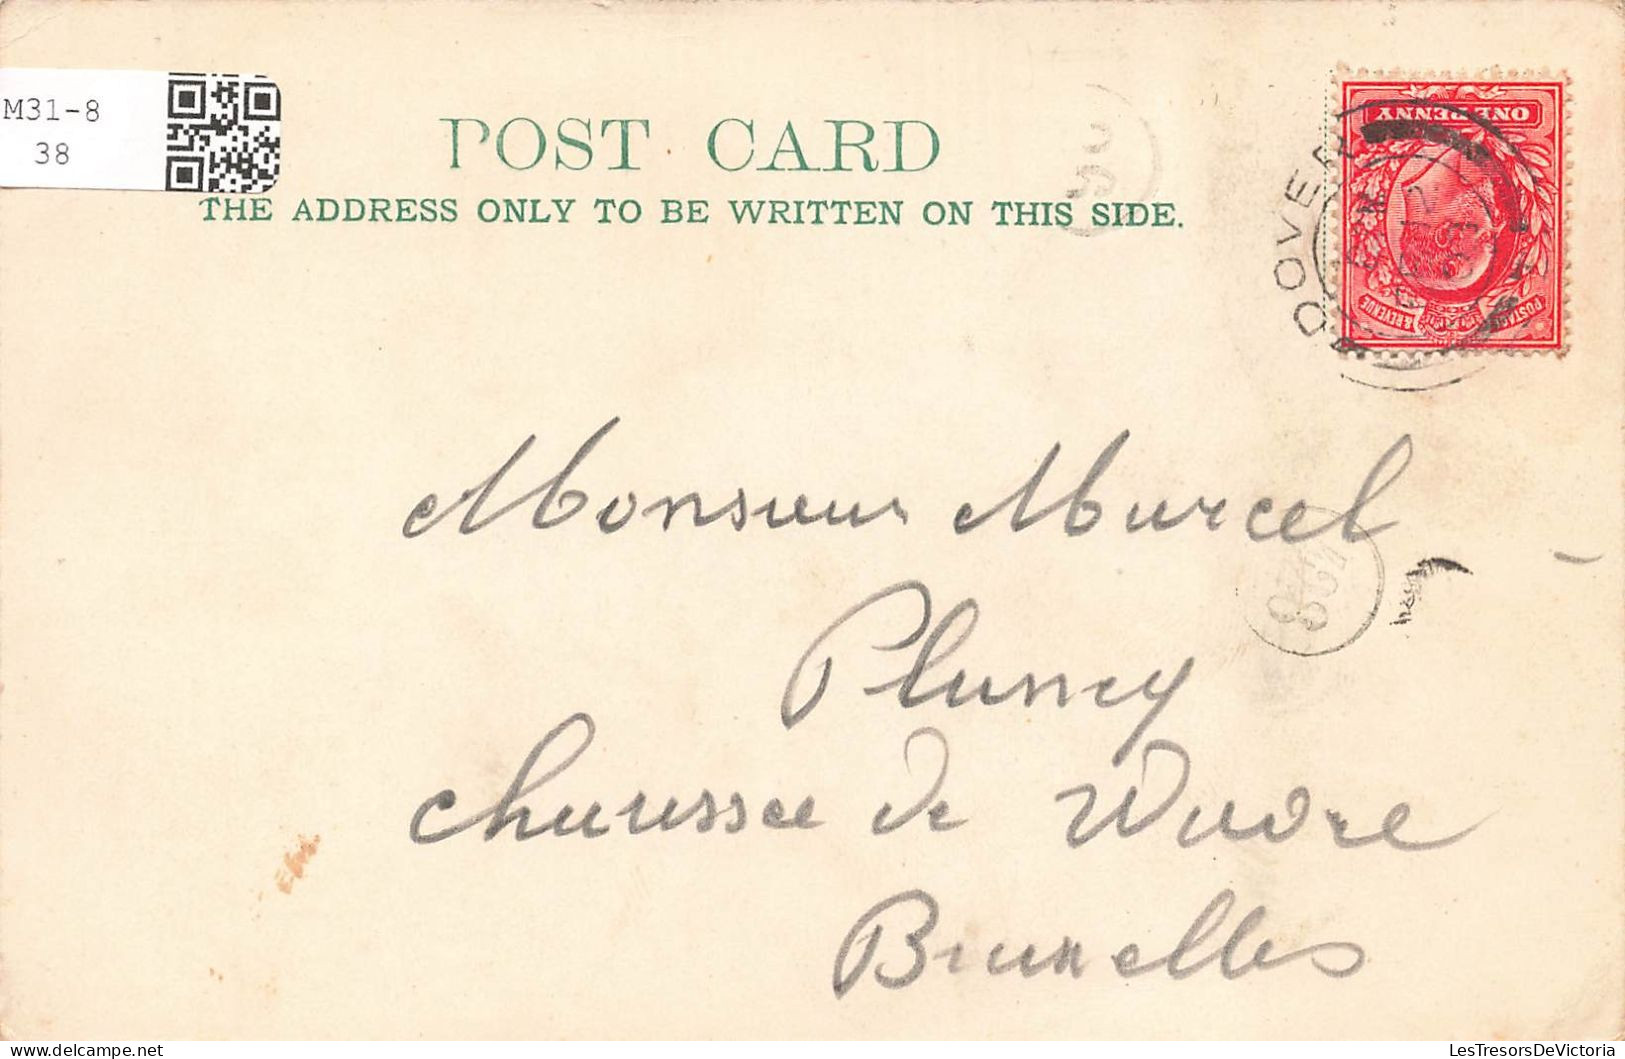 M31-8
38
POST CARD
THE ADDRESS ONLY TO BE WRITTEN ON THIS SIDE.
ONE PENNY
POSTAGE & REVENUE
DOVER
Monsieur Marcel
chaussee de Wavre
Bruxelles
LesTresorsDeVictoria